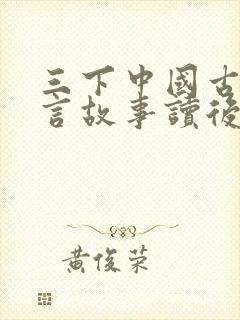 三下中國古
言故事讀後
黃俊榮